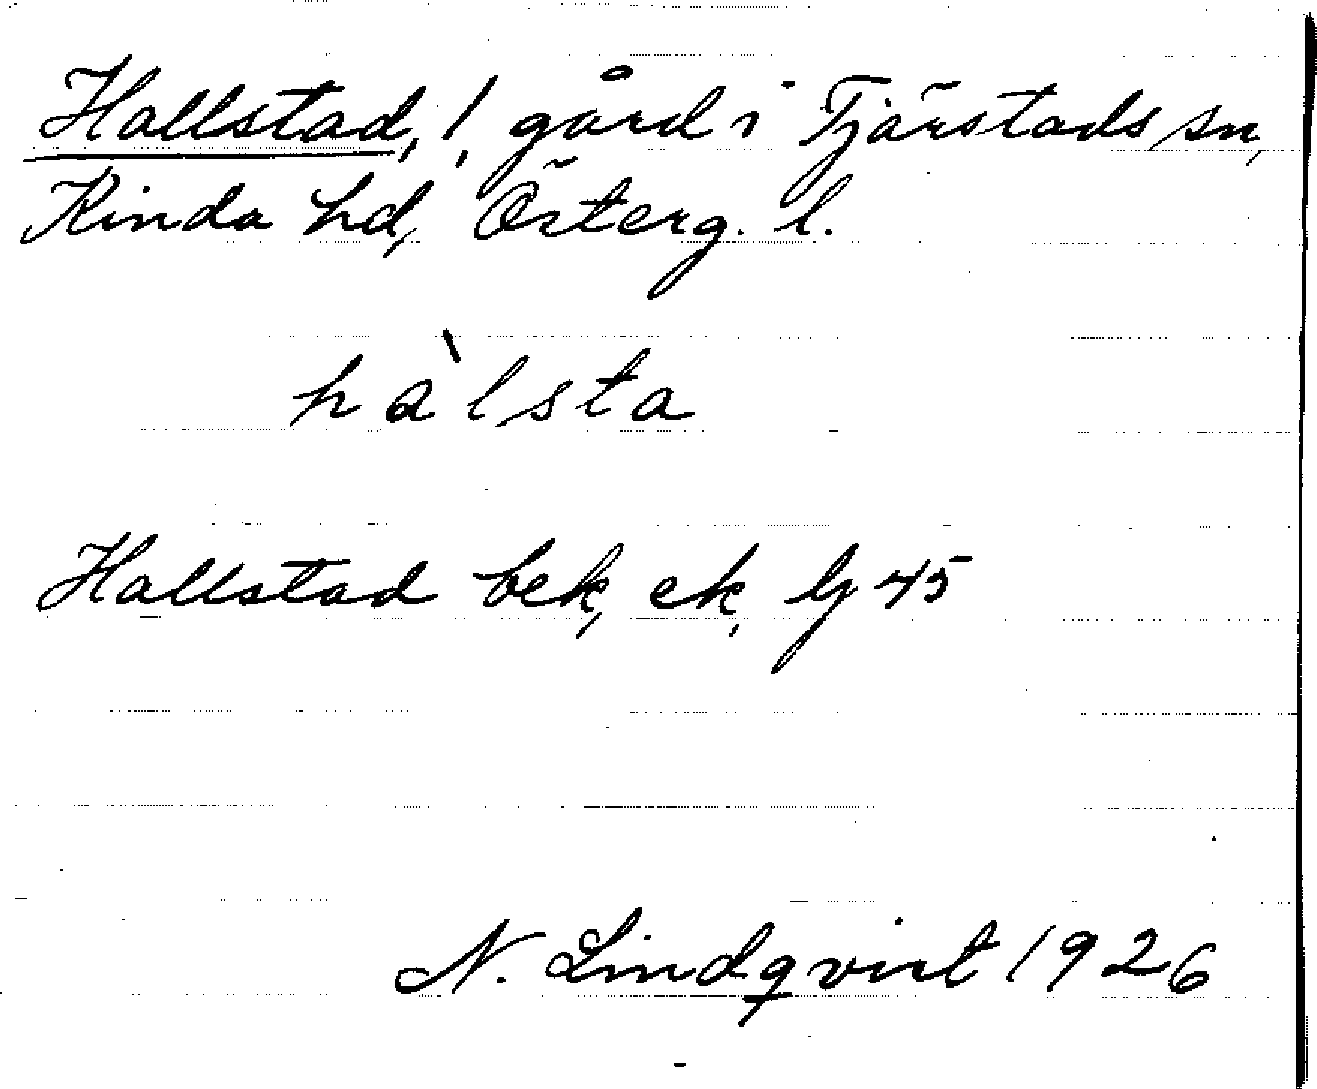 Hallstad, 1, gård i Tjärstads sn,
Kinda hd, Österg. l.
hàlsta
Hallstad bek, ek, lj 45
N. Lindqvist 1926